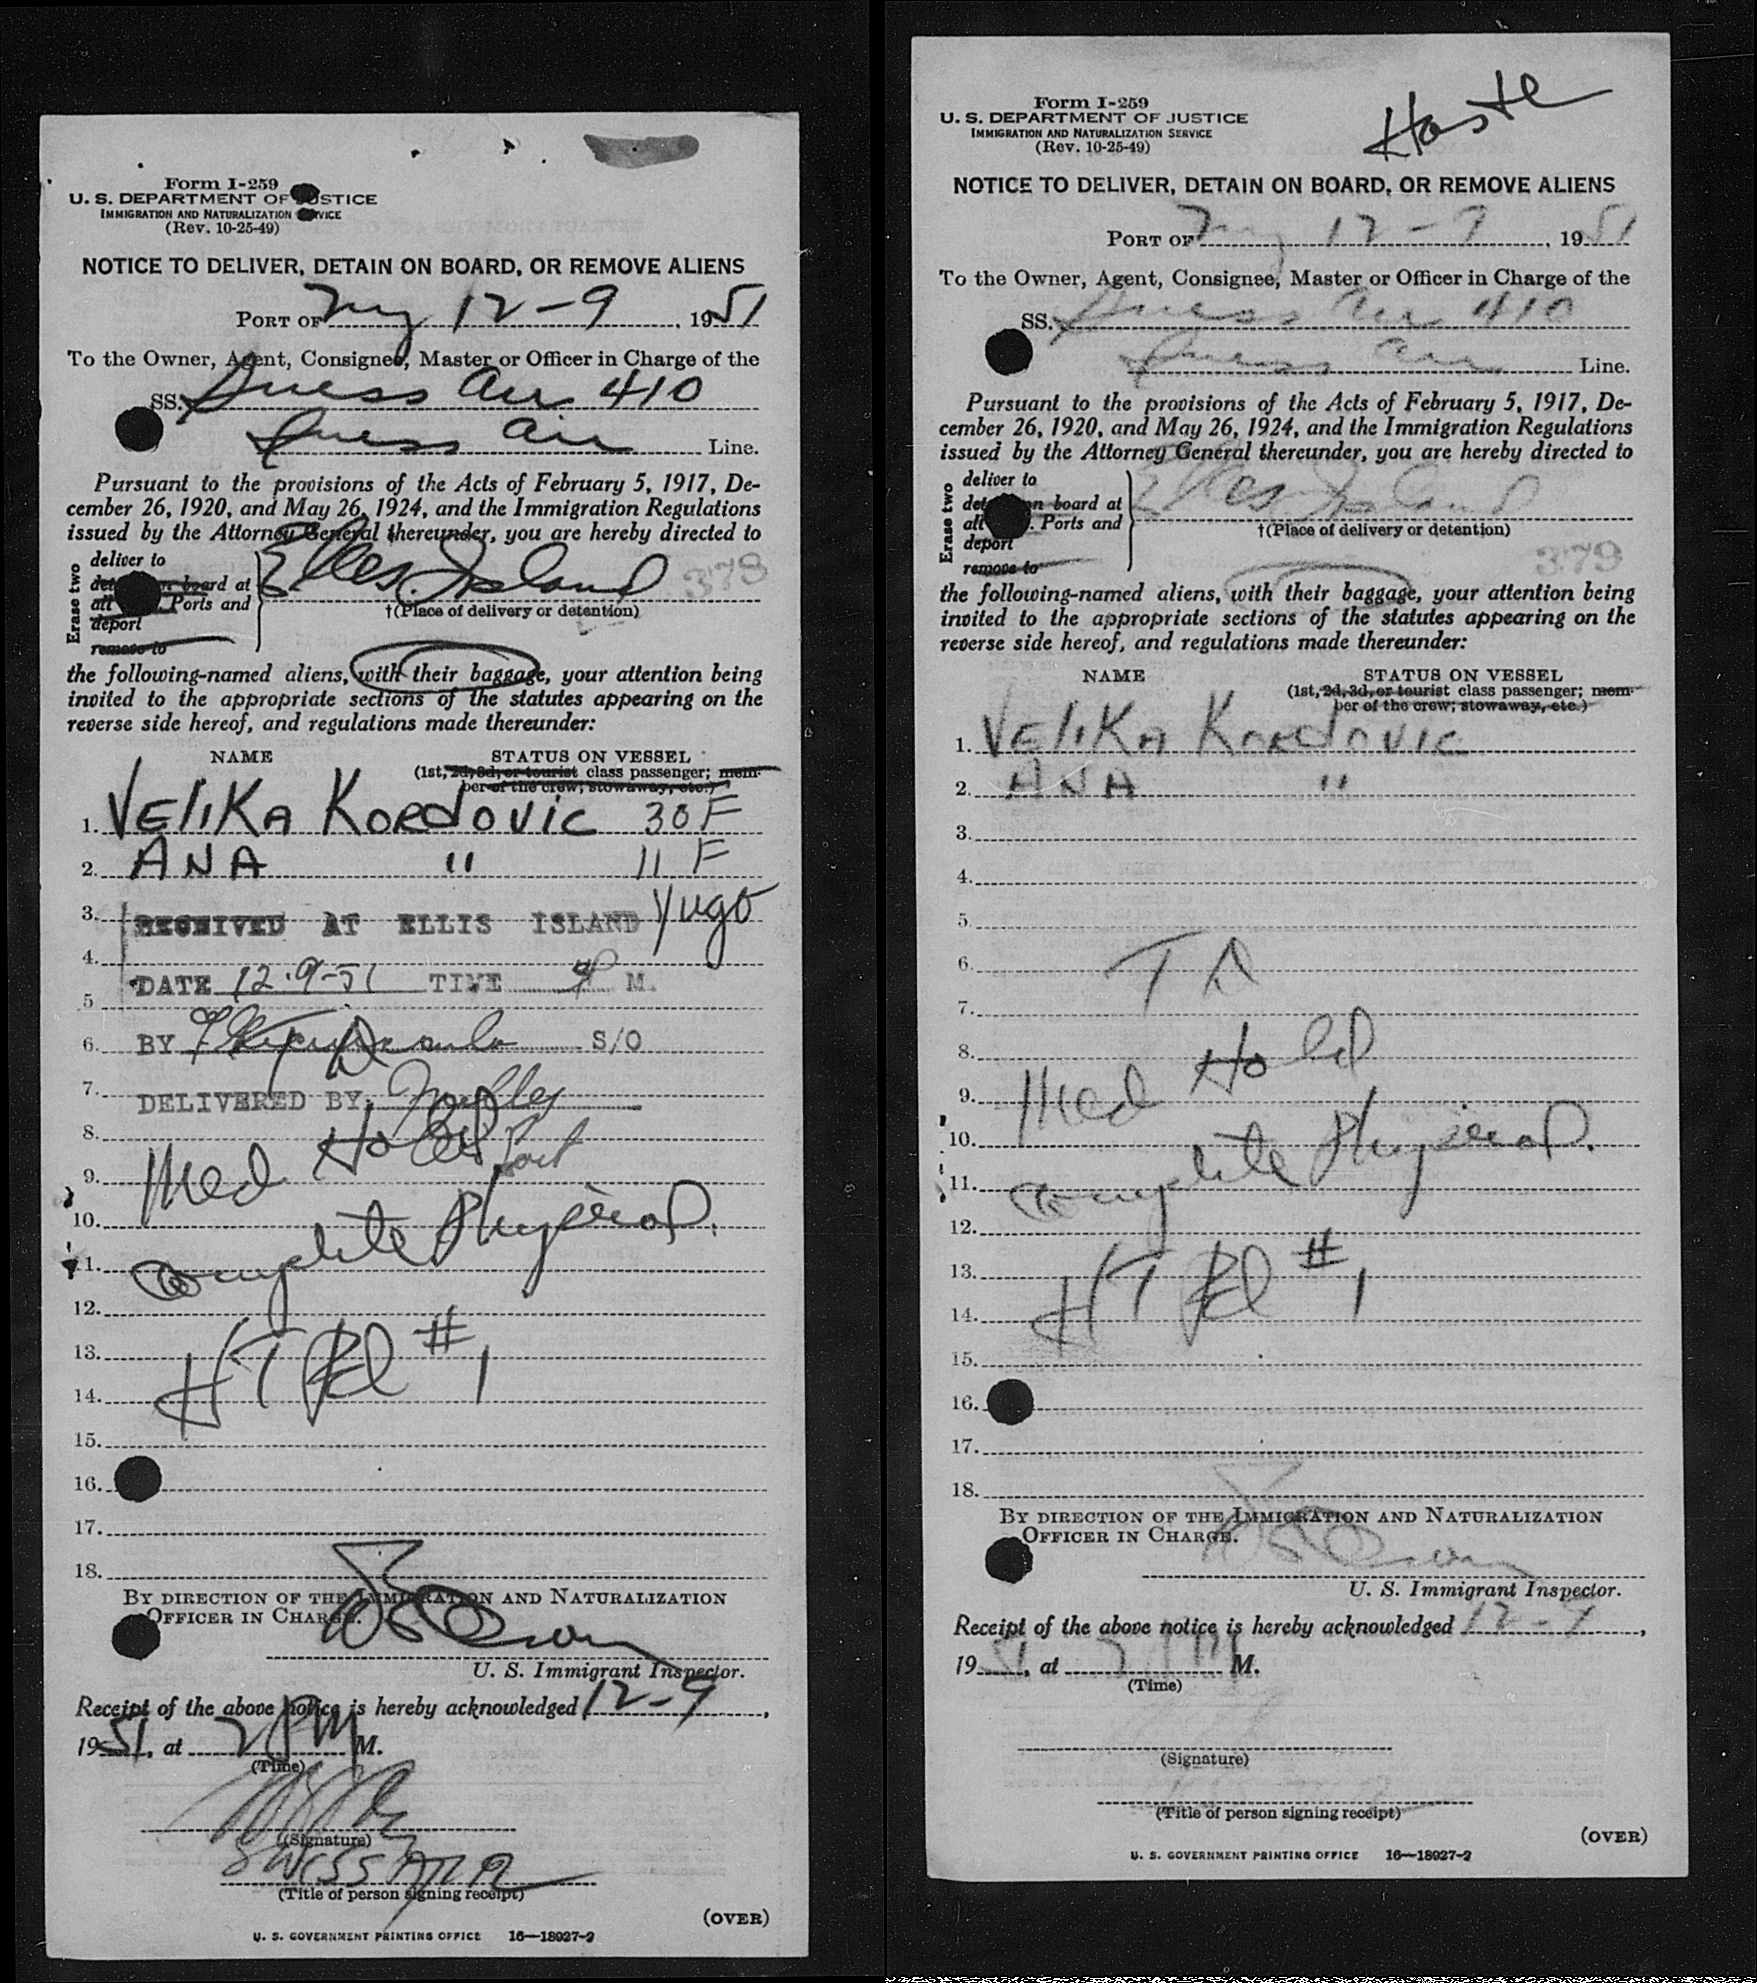 Form I-259
U. S. DEPARTMENT OF JUSTICE
IMMIGRATION AND NATURALIZATION SERVICE
(Rev. 10-25-49)
NOTICE TO DELIVER, DETAIN ON BOARD, OR REMOVE ALIENS
PORT OF NY 12-9, 1951
To the Owner, Agent, Consignee, Master or Officer in Charge of the
SS. Swess Air 410
Swess Air Line.
Pursuant to the provisions of the Acts of February 5, 1917, De-
cember 26, 1920, and May 26, 1924, and the Immigration Regulations
issued by the Attorney General thereunder, you are hereby directed to
Erase two
deliver to
detain on board at
all Ports and
deport
remove to
Ellis Island
379
†(Place of delivery or detention)
the following-named aliens, with their baggage, your attention being
invited to the appropriate sections of the statutes appearing on the
reverse side hereof, and regulations made thereunder:
NAME STATUS ON VESSEL
(1st, 2d, 3d, or tourist class passenger; mem-
ber of the crew; stowaway, etc.)
1. VELIKA KORDOVIC 30 F
2. ANA " 11 F
3. RECEIVED AT ELLIS ISLAND Yugo
4.
5. DATE 12-9-51 TIME M.
6. BY S/O
7. DELIVERED BY
8. Hold
9. Med
10. Physical.
11. Complete
12.
13. HT Rd #1
14.
15.
16.
17.
18.
BY DIRECTION OF THE IMMIGRATION AND NATURALIZATION
OFFICER IN CHARGE.
U. S. Immigrant Inspector.
Receipt of the above notice is hereby acknowledged 12-9,
1951, at 2 PM M.
(Time)
(Signature)
SWISSAIR
(Title of person signing receipt)
(OVER)
U. S. GOVERNMENT PRINTING OFFICE 16—18027-2
Form I-259
U. S. DEPARTMENT OF JUSTICE
IMMIGRATION AND NATURALIZATION SERVICE
(Rev. 10-25-49)
NOTICE TO DELIVER, DETAIN ON BOARD, OR REMOVE ALIENS
PORT OF NY 12-9, 1951
To the Owner, Agent, Consignee, Master or Officer in Charge of the
SS. Swess Air 410
Swess Air Line.
Pursuant to the provisions of the Acts of February 5, 1917, De-
cember 26, 1920, and May 26, 1924, and the Immigration Regulations
issued by the Attorney General thereunder, you are hereby directed to
Erase two
deliver to
detain on board at
all Ports and
deport
remove to
Ellis Island
†(Place of delivery or detention)
379
the following-named aliens, with their baggage, your attention being
invited to the appropriate sections of the statutes appearing on the
reverse side hereof, and regulations made thereunder:
NAME STATUS ON VESSEL
(1st, 2d, 3d, or tourist class passenger; mem-
ber of the crew; stowaway, etc.)
1. VELIKA KORDOVIC
2. ANA "
3.
4.
5.
6. T D
7.
8. Hold
9. Med
10. Physical.
11. Complete
12.
13. HT Rd #1
14.
15.
16.
17.
18.
BY DIRECTION OF THE IMMIGRATION AND NATURALIZATION
OFFICER IN CHARGE.
U. S. Immigrant Inspector.
Receipt of the above notice is hereby acknowledged 12-9,
1951, at 2 PM M.
(Time)
(Signature)
(Title of person signing receipt)
(OVER)
U. S. GOVERNMENT PRINTING OFFICE 16—18027-2